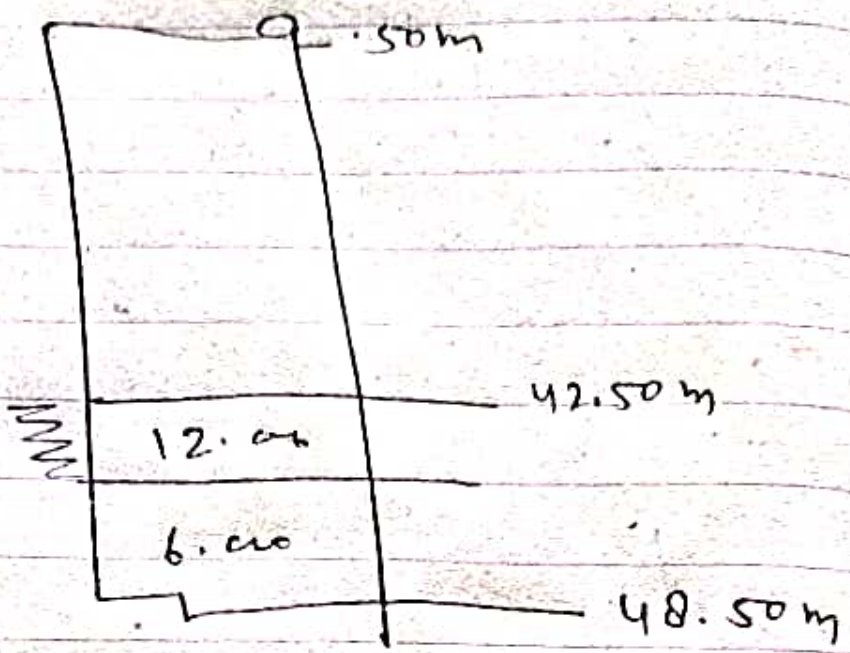 .50m
42.50 m
12.00
6.00
48.50 m